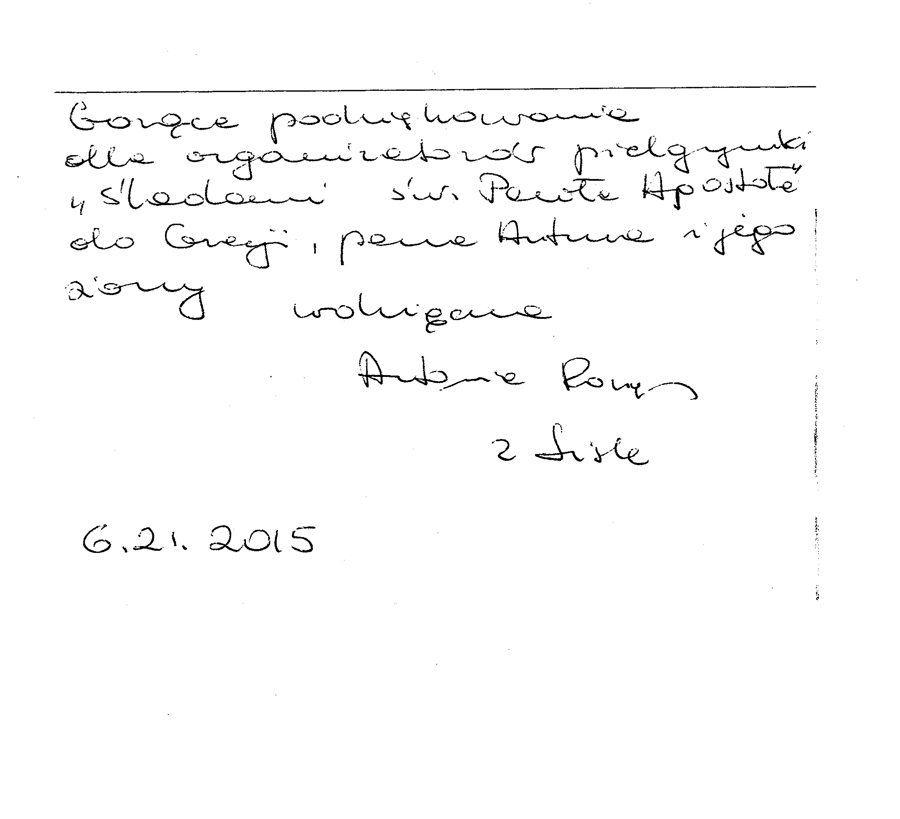 Gorące podziękowania
dla organizatorów pielgrzymki
„Śladami św. Pawła Apostoła”
do Grecji, pana Artura i jego
żony wdzięczna
Antonia
z Lisle
6.21.2015